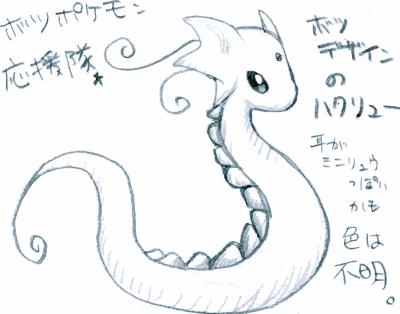 ボツポケモン
応援隊★
ボツ
デザイン
の
ハクリュー
耳が
ミニリュウ
っぽい
かも
色は
不明。